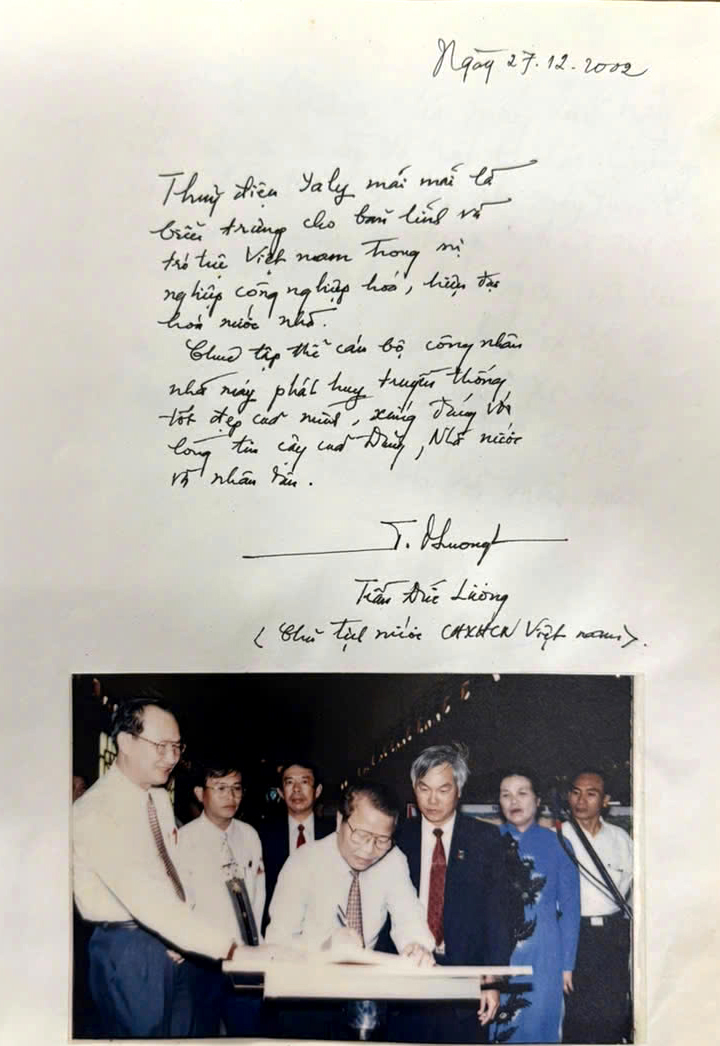 Ngày 27.12.2002
Thuỷ điện Yaly mãi mãi là
biểu trưng cho bản lĩnh và
trí tuệ Việt nam trong sự
nghiệp công nghiệp hoá, hiện đại
hoá nước nhà.
Chúc tập thể cán bộ công nhân
nhà máy phát huy truyền thống
tốt đẹp của mình, xứng đáng với
lòng tin cậy của Đảng, Nhà nước
và nhân dân.
T. Đ Luong
Trần Đức Lương
(Chủ tịch nước CHXHCN Việt nam).